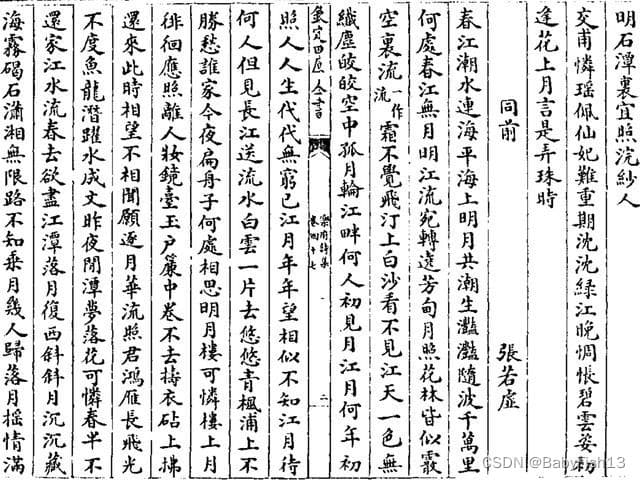 明石潭裏宜照浣紗人
交甫憐瑶佩仙妃難重期沈沈緑江晚惆悵碧雲姿初
逢花上月言是弄珠時
同前 張若虛
春江潮水連海平海上明月共潮生灩灩隨波千萬里
何處春江無月明江流宛轉遶芳甸月照花林皆似霰
空裏流一作流霜不覺飛汀上白沙看不見江天一色無
纎塵皎皎空中孤月輪江畔何人初見月江月何年初
欽定四庫全書 樂府詩集 卷四十七 二
照人人生代代無窮已江月年年望相似不知江月待
何人但見長江送流水白雲一片去悠悠青楓浦上不
勝愁誰家今夜扁舟子何處相思明月樓可憐樓上月
徘徊應照離人妝鏡臺玉户簾中卷不去擣衣砧上拂
還來此時相望不相聞願逐月華流照君鴻雁長飛光
不度魚龍潛躍水成文昨夜閒潭夢落花可憐春半不
還家江水流春去欲盡江潭落月復西斜斜月沉沉藏
海霧碣石瀟湘無限路不知乘月幾人歸落月摇情滿
CSDN @Babyfish13